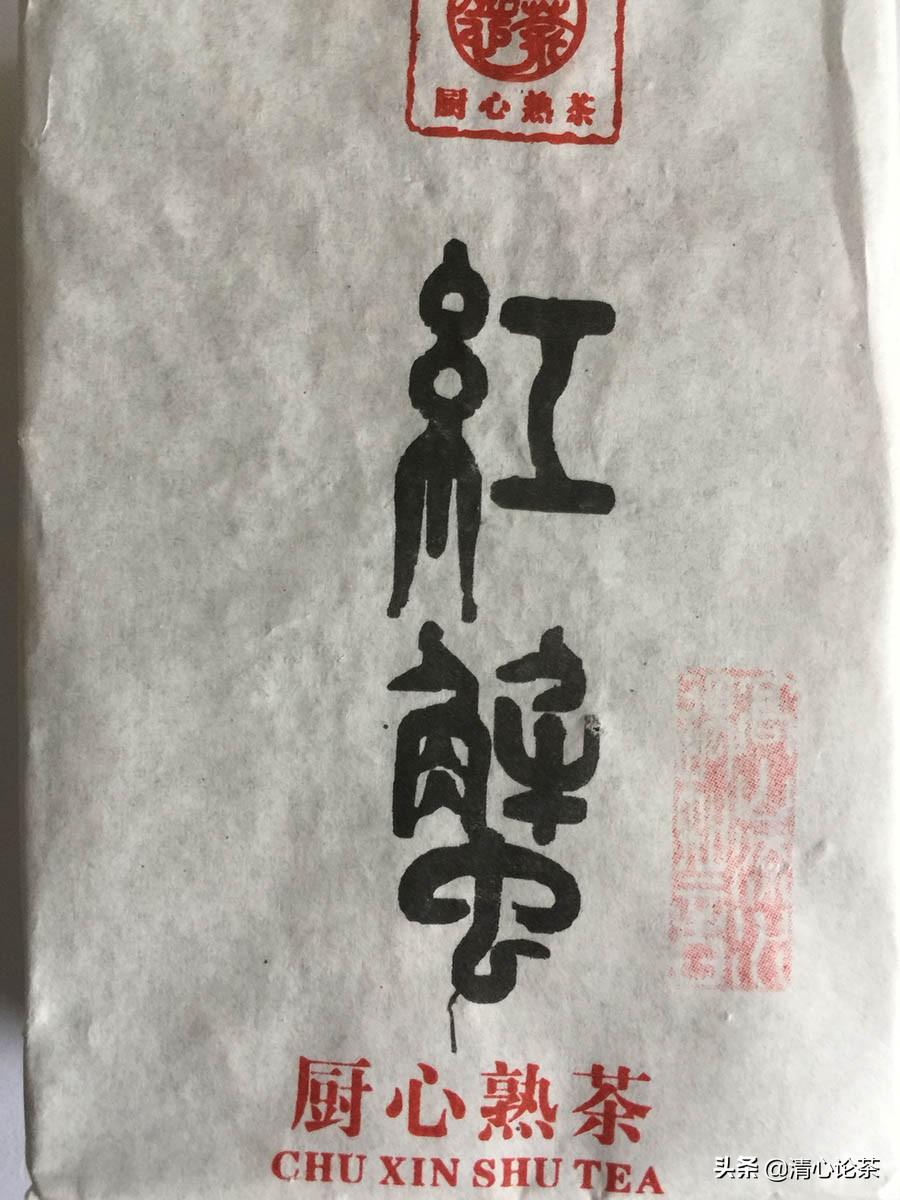 厨心熟茶
紅蟹
厨心熟茶
CHU XIN SHU TEA
头条 @清心论茶